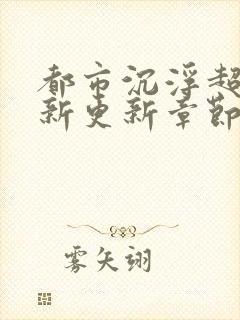 都市沉浮超
新更新章節
雾矢翊